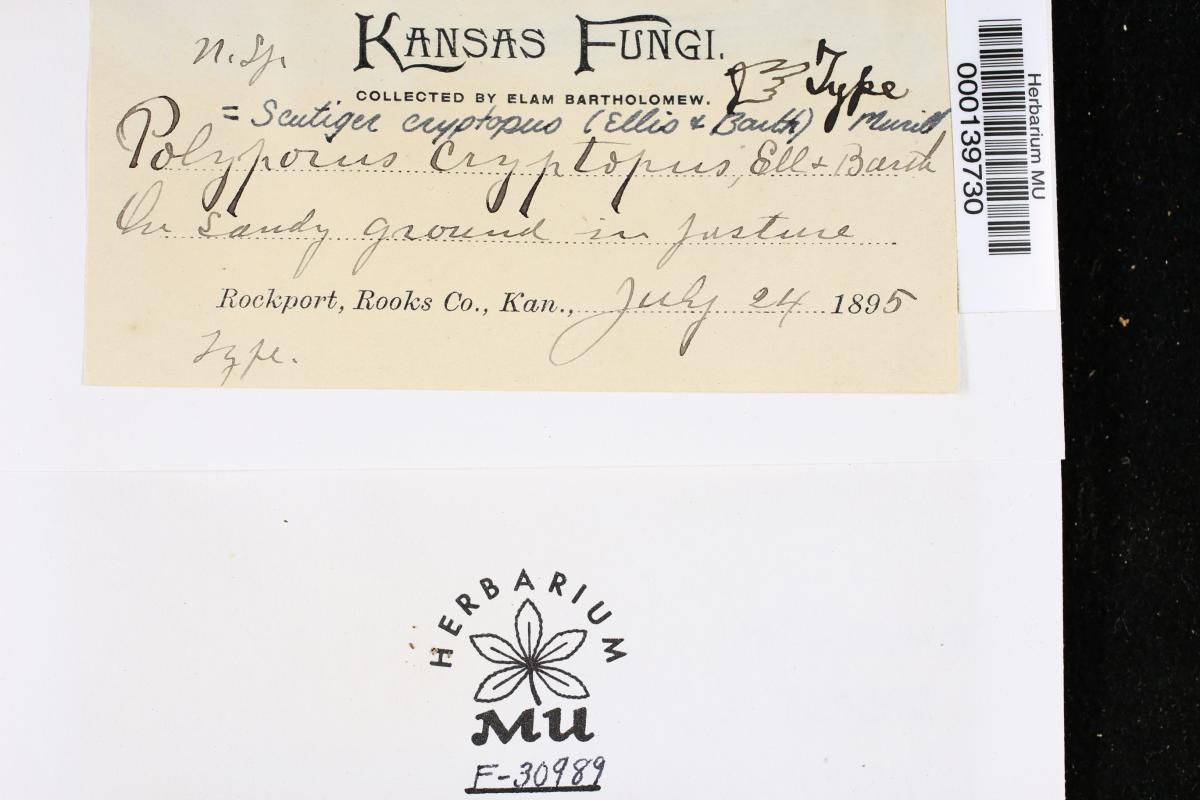 n. Sp.
KANSAS FUNGI.
COLLECTED BY ELAM BARTHOLOMEW.
Type
= Scutiger cryptopus (Ellis & Barth) Murill
Polyporus cryptopus, Ell & Barth
On sandy ground in pasture
Rockport, Rooks Co., Kan., July 24 1895
Type.
Herbarium MU
000139730
HERBARIUM
MU
F-30989